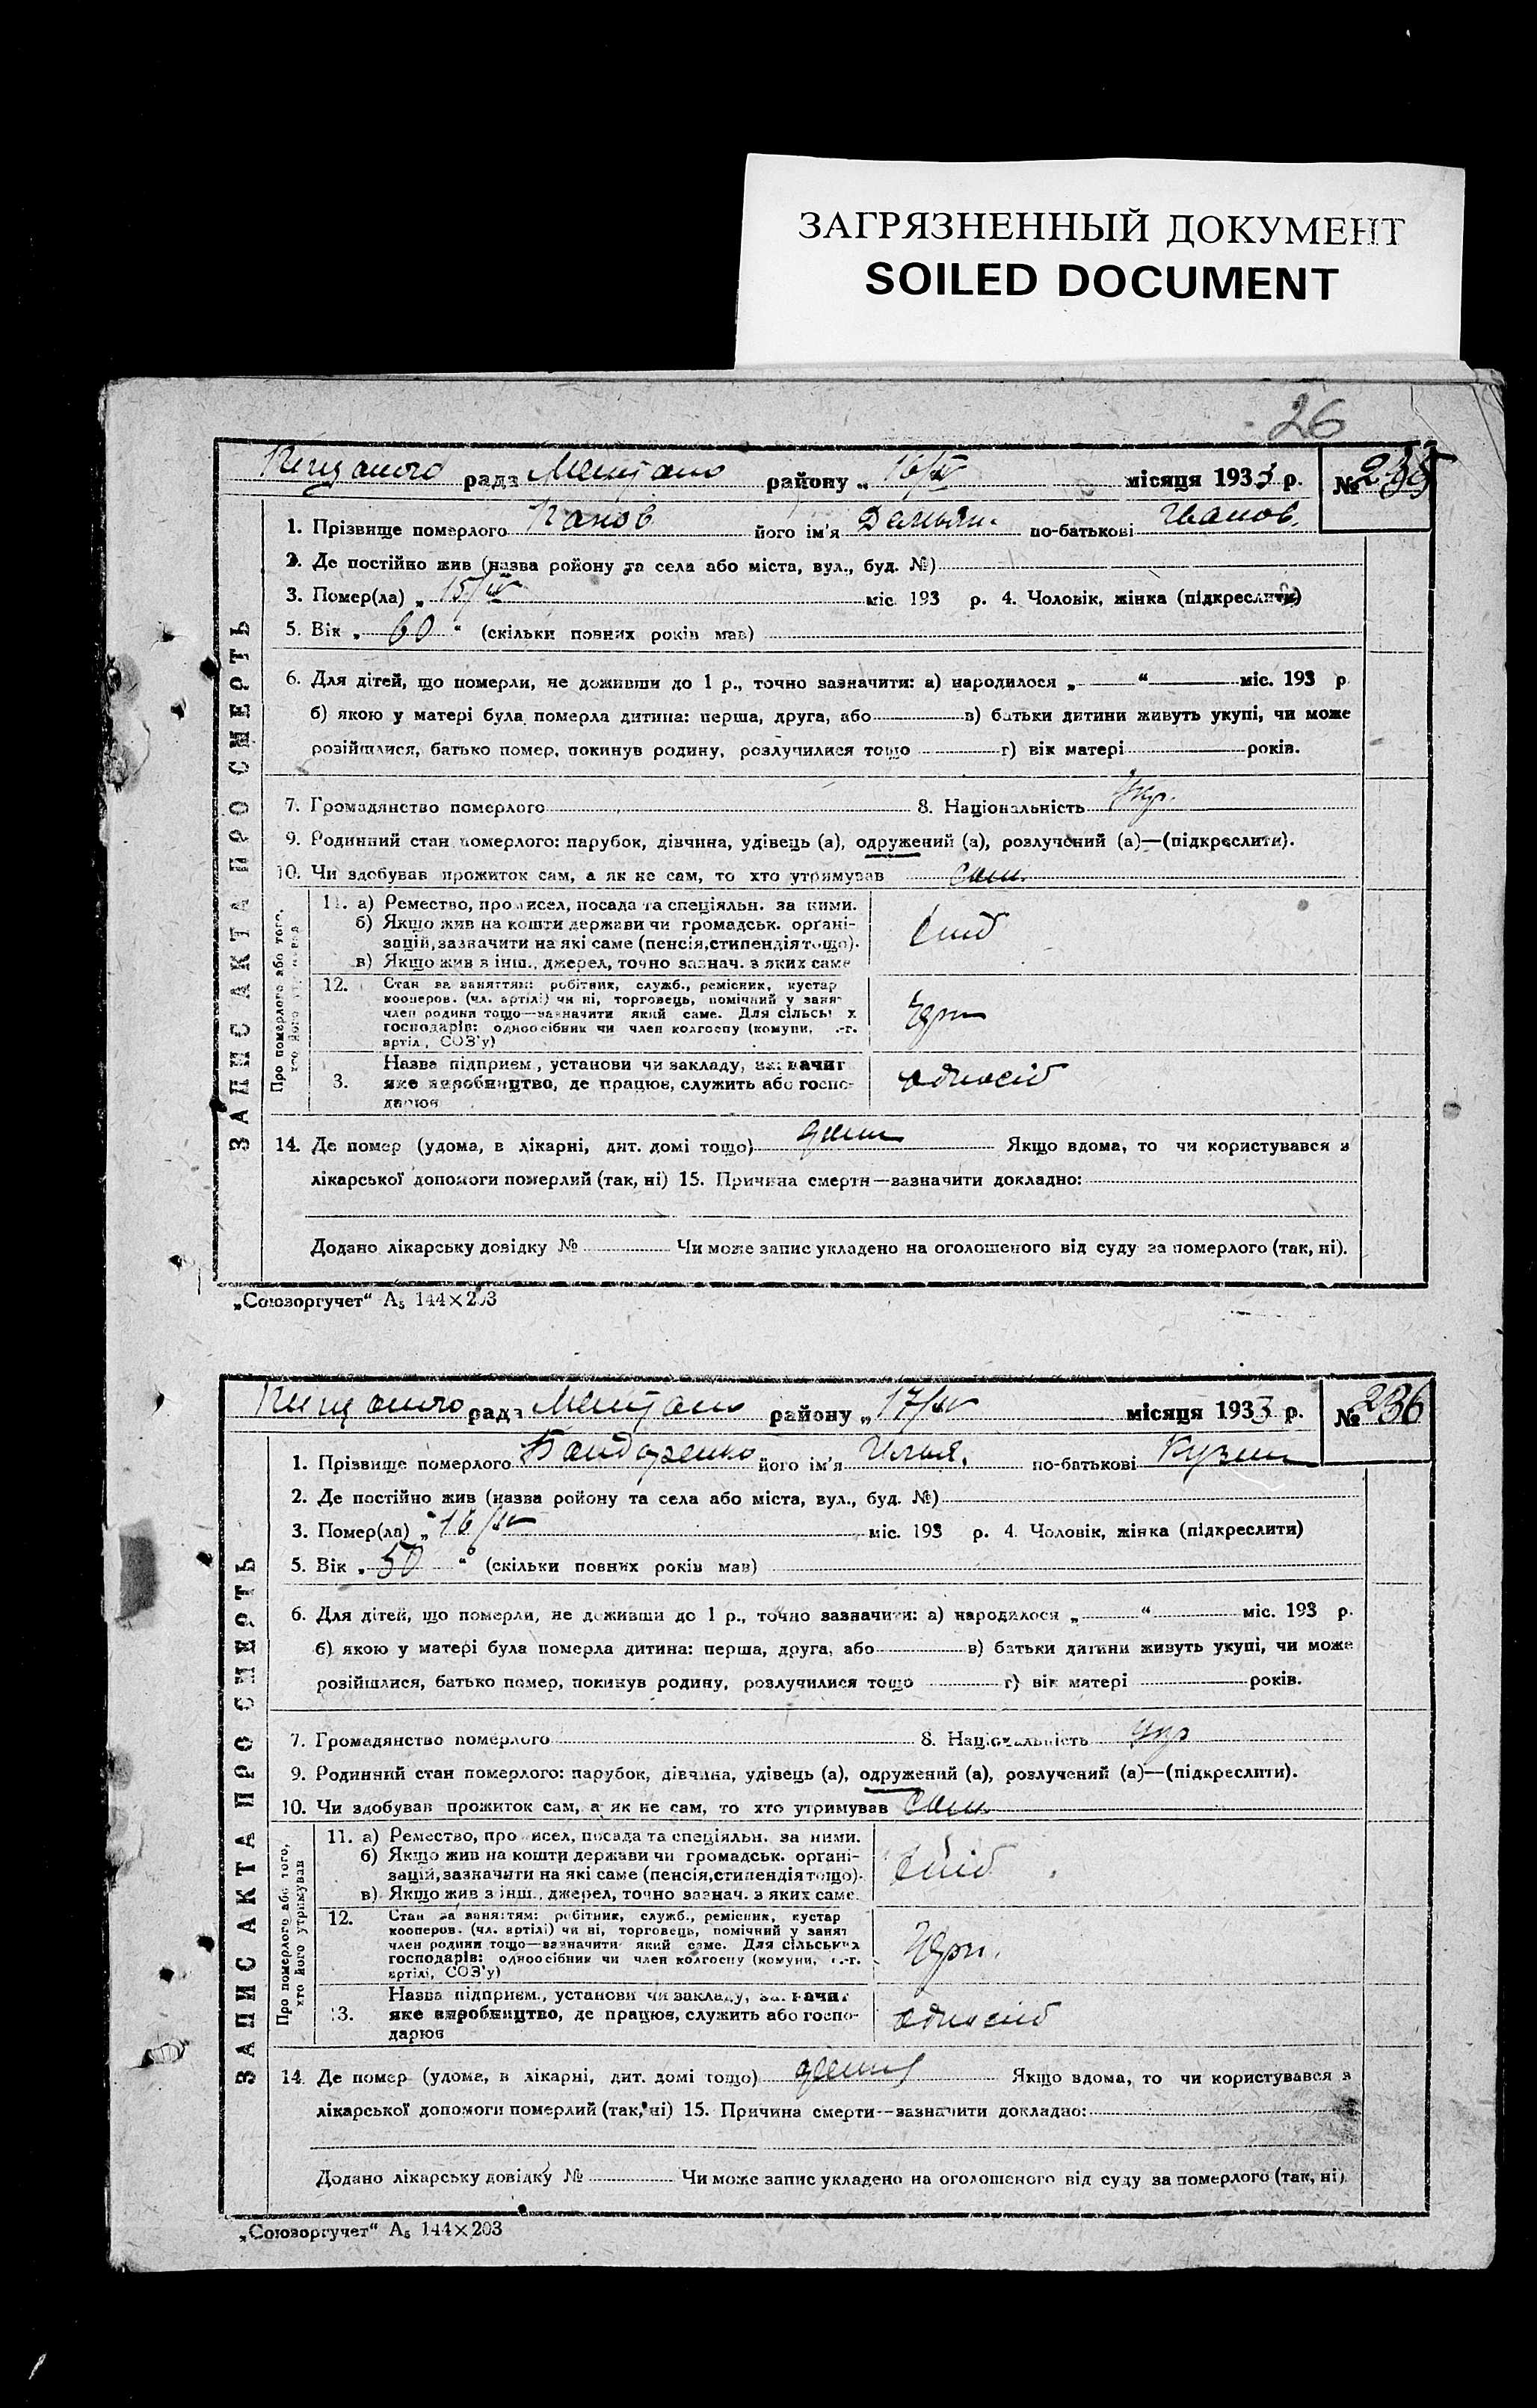 ЗАГРЯЗНЕННЫЙ ДОКУМЕНТ
SOILED DOCUMENT
26
рада району „ 16/IV місяця 1933 р. № 235
1. Прізвище померлого Панов його ім'я Демьян. по-батькові Иванов.
2. Де постійно жив (назва ройону та села або міста, вул., буд. №)
3. Помер(ла) „ 15/IV міс. 193 р. 4. Чоловік, жінка (підкреслити)
5. Вік „ 60 “ (скільки повних років мав)
6. Для дітей, що померли, не доживши до 1 р., точно зазначити: а) народилося „ “ міс. 193 р
б) якою у матері була померла дитина: перша, друга, або в) батьки дитини живуть укупі, чи може
розійшлися, батько помер, покинув родину, розлучилися тощо г) вік матері років.
7. Громадянство померлого 8. Національність Укр.
9. Родинний стан померлого: парубок, дівчина, удівець (а), одружений (а), розлучений (а)—(підкреслити).
10. Чи здобував прожиток сам, а як не сам, то хто утримував сам.
ЗАПИС АКТА ПРО СМЕРТЬ
Про померлого або того,
11. а) Ремество, промисел, посада та спеціяльн. за ними.
б) Якщо жив на кошти держави чи громадськ. органі-
зацій, зазначити на які саме (пенсія, стипендія тощо).
в) Якщо жив з інш., джерел, точно зазнач. з яких саме
12. Стан за заняттям: робітник, служб., ремісник, кустар
кооперов. (чл. артілі) чи ні, торговець, помічний у заня
член родини тощо—зазначити який саме. Для сільськ х
господарів: одноосібник чи член колгоспу (комуни, .-г.
артіл., СОЗ'у)
3. Назва підприєм., установи чи закладу, зазначит
яке виробництво, де працює, служить або госпо-
дарює
одноосіб
14. Де помер (удома, в лікарні, дит. домі тощо) дома Якщо вдома, то чи користувався з
лікарської допомоги померлий (так, ні) 15. Причина смерти—зазначити докладно:
Додано лікарську довідку № Чи може запис укладено на оголошеного від суду за померлого (так, ні).
„Союзоргучет“ А₅ 144×203
рада району „ 17/IV місяця 1933 р. № 236
1. Прізвище померлого Бандаренко його ім'я Илья. по-батькові Кузьм
2. Де постійно жив (назва ройону та села або міста, вул., буд. №)
3. Помер(ла) „ 16/IV міс. 193 р. 4. Чоловік, жінка (підкреслити)
5. Вік „ 50 “ (скільки повних років мав)
6. Для дітей, що померли, не доживши до 1 р., точно зазначити: а) народилося „ “ міс. 193 р.
б) якою у матері була померла дитина: перша, друга, або в) батьки дитини живуть укупі, чи може
розійшлися, батько помер, покинув родину, розлучилися тощо г) вік матері років.
7. Громадянство померлого 8. Національність укр
9. Родинний стан померлого: парубок, дівчина, удівець (а), одружений (а), розлучений (а)—(підкреслити).
10. Чи здобував прожиток сам, а як не сам, то хто утримував сам
ЗАПИС АКТА ПРО СМЕРТЬ
Про померлого або того,
хто його утримував
11. а) Ремество, промисел, посада та спеціяльн. за ними.
б) Якщо жив на кошти держави чи громадськ. органі-
зацій, зазначити на які саме (пенсія, стипендія тощо).
в) Якщо жив з інш., джерел, точно зазнач. з яких саме.
12. Стан за заняттям: робітник, служб., ремісник, кустар
кооперов. (чл. артілі) чи ні, торговець, помічний у занят
член родини тощо—зазначити який саме. Для сільських
господарів: одноосібник чи член колгоспу (комуни, с.-г.
артілі, СОЗ'у)
13. Назва підприєм., установи чи закладу, зазначит
яке виробництво, де працює, служить або госпо-
дарює
одноосіб
14. Де помер (удома, в лікарні, дит. домі тощо) дома Якщо вдома, то чи користувався з
лікарської допомоги померлий (так, ні) 15. Причина смерти—зазначити докладно:
Додано лікарську довідку № Чи може запис укладено на оголошеного від суду за померлого (так, ні)
„Союзоргучет“ А₅ 144×203